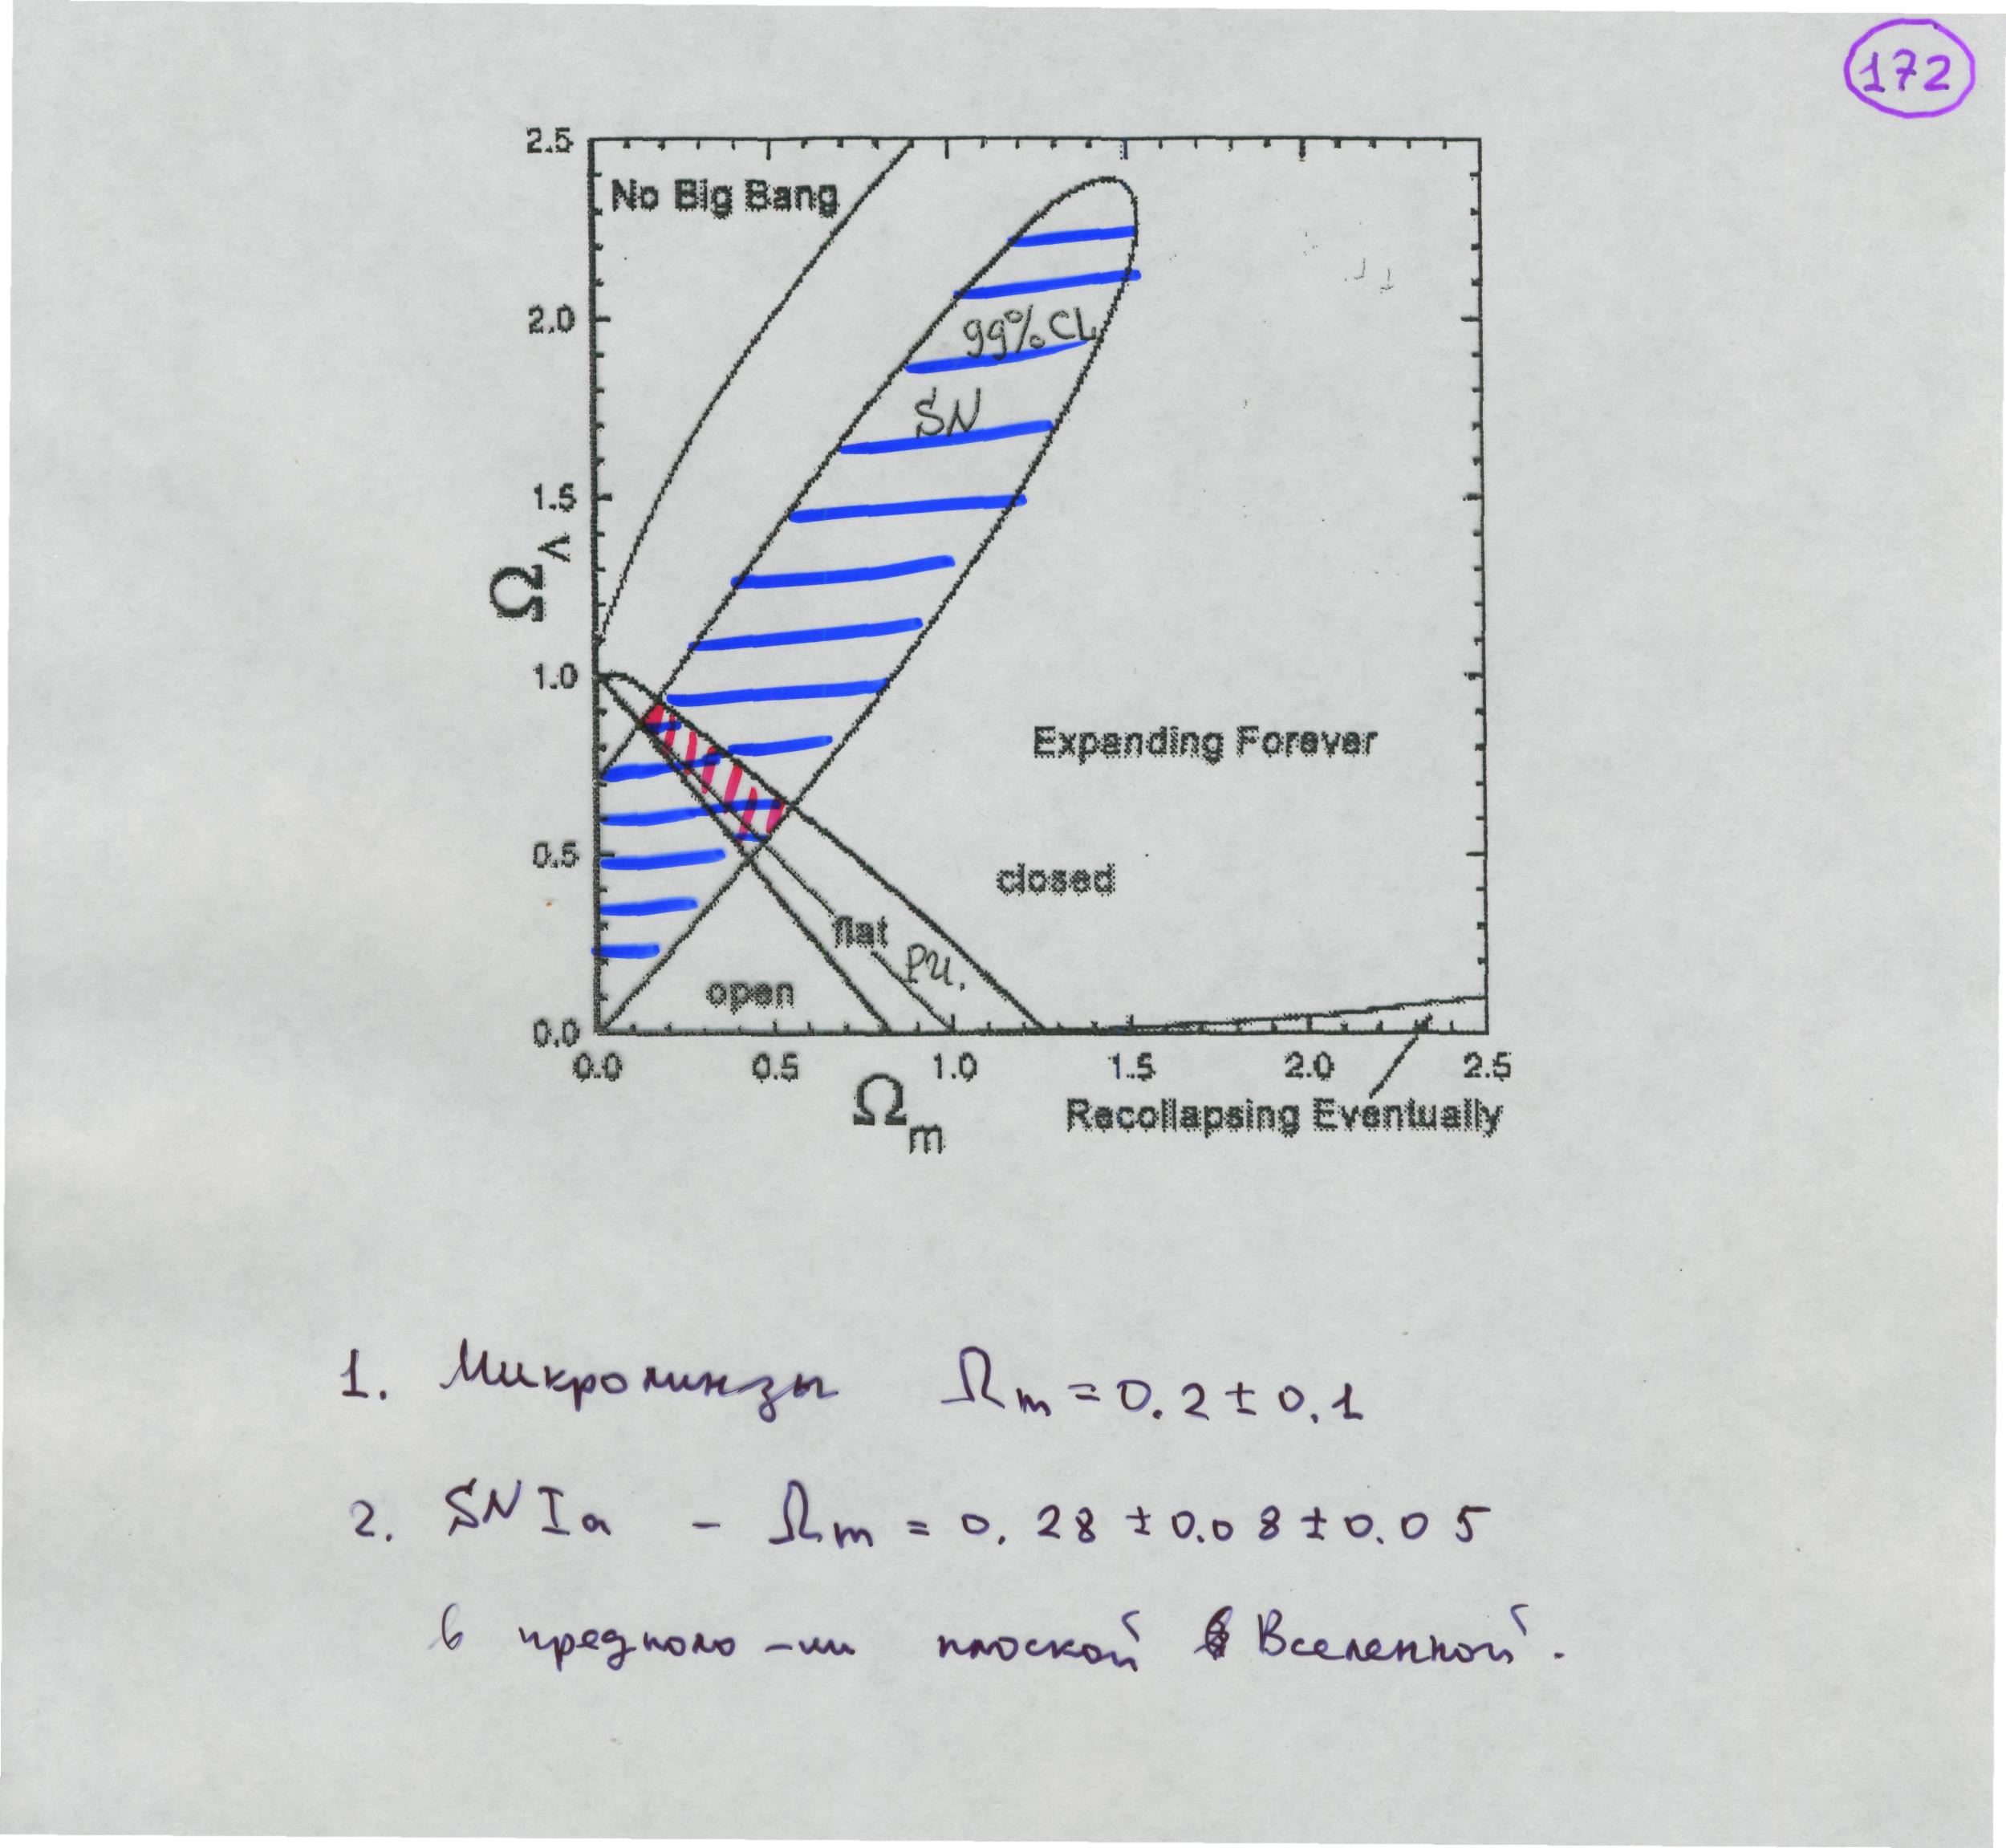 172
2.5
No Big Bang
2.0
99% CL
SN
1.5
Ω_Λ
1.0
Expanding Forever
0.5
closed
flat
РИ.
open
0.0
0.0 0.5 1.0 1.5 2.0 2.5
Ω_m
Recollapsing Eventually
1. Микролинзы Ω_m = 0.2 ± 0.1
2. SN Ia - Ω_m = 0.28 ± 0.08 ± 0.05
в предполо-ии плоской Вселенной.